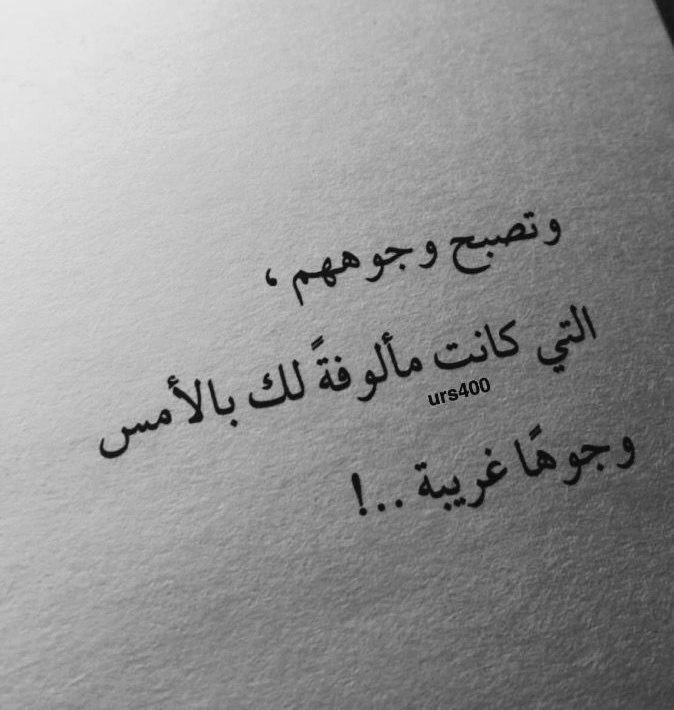 وتصبح وجوههم ،
التي كانت مألوفةً لك بالأمس
urs400
وجوهًا غريبة ..!